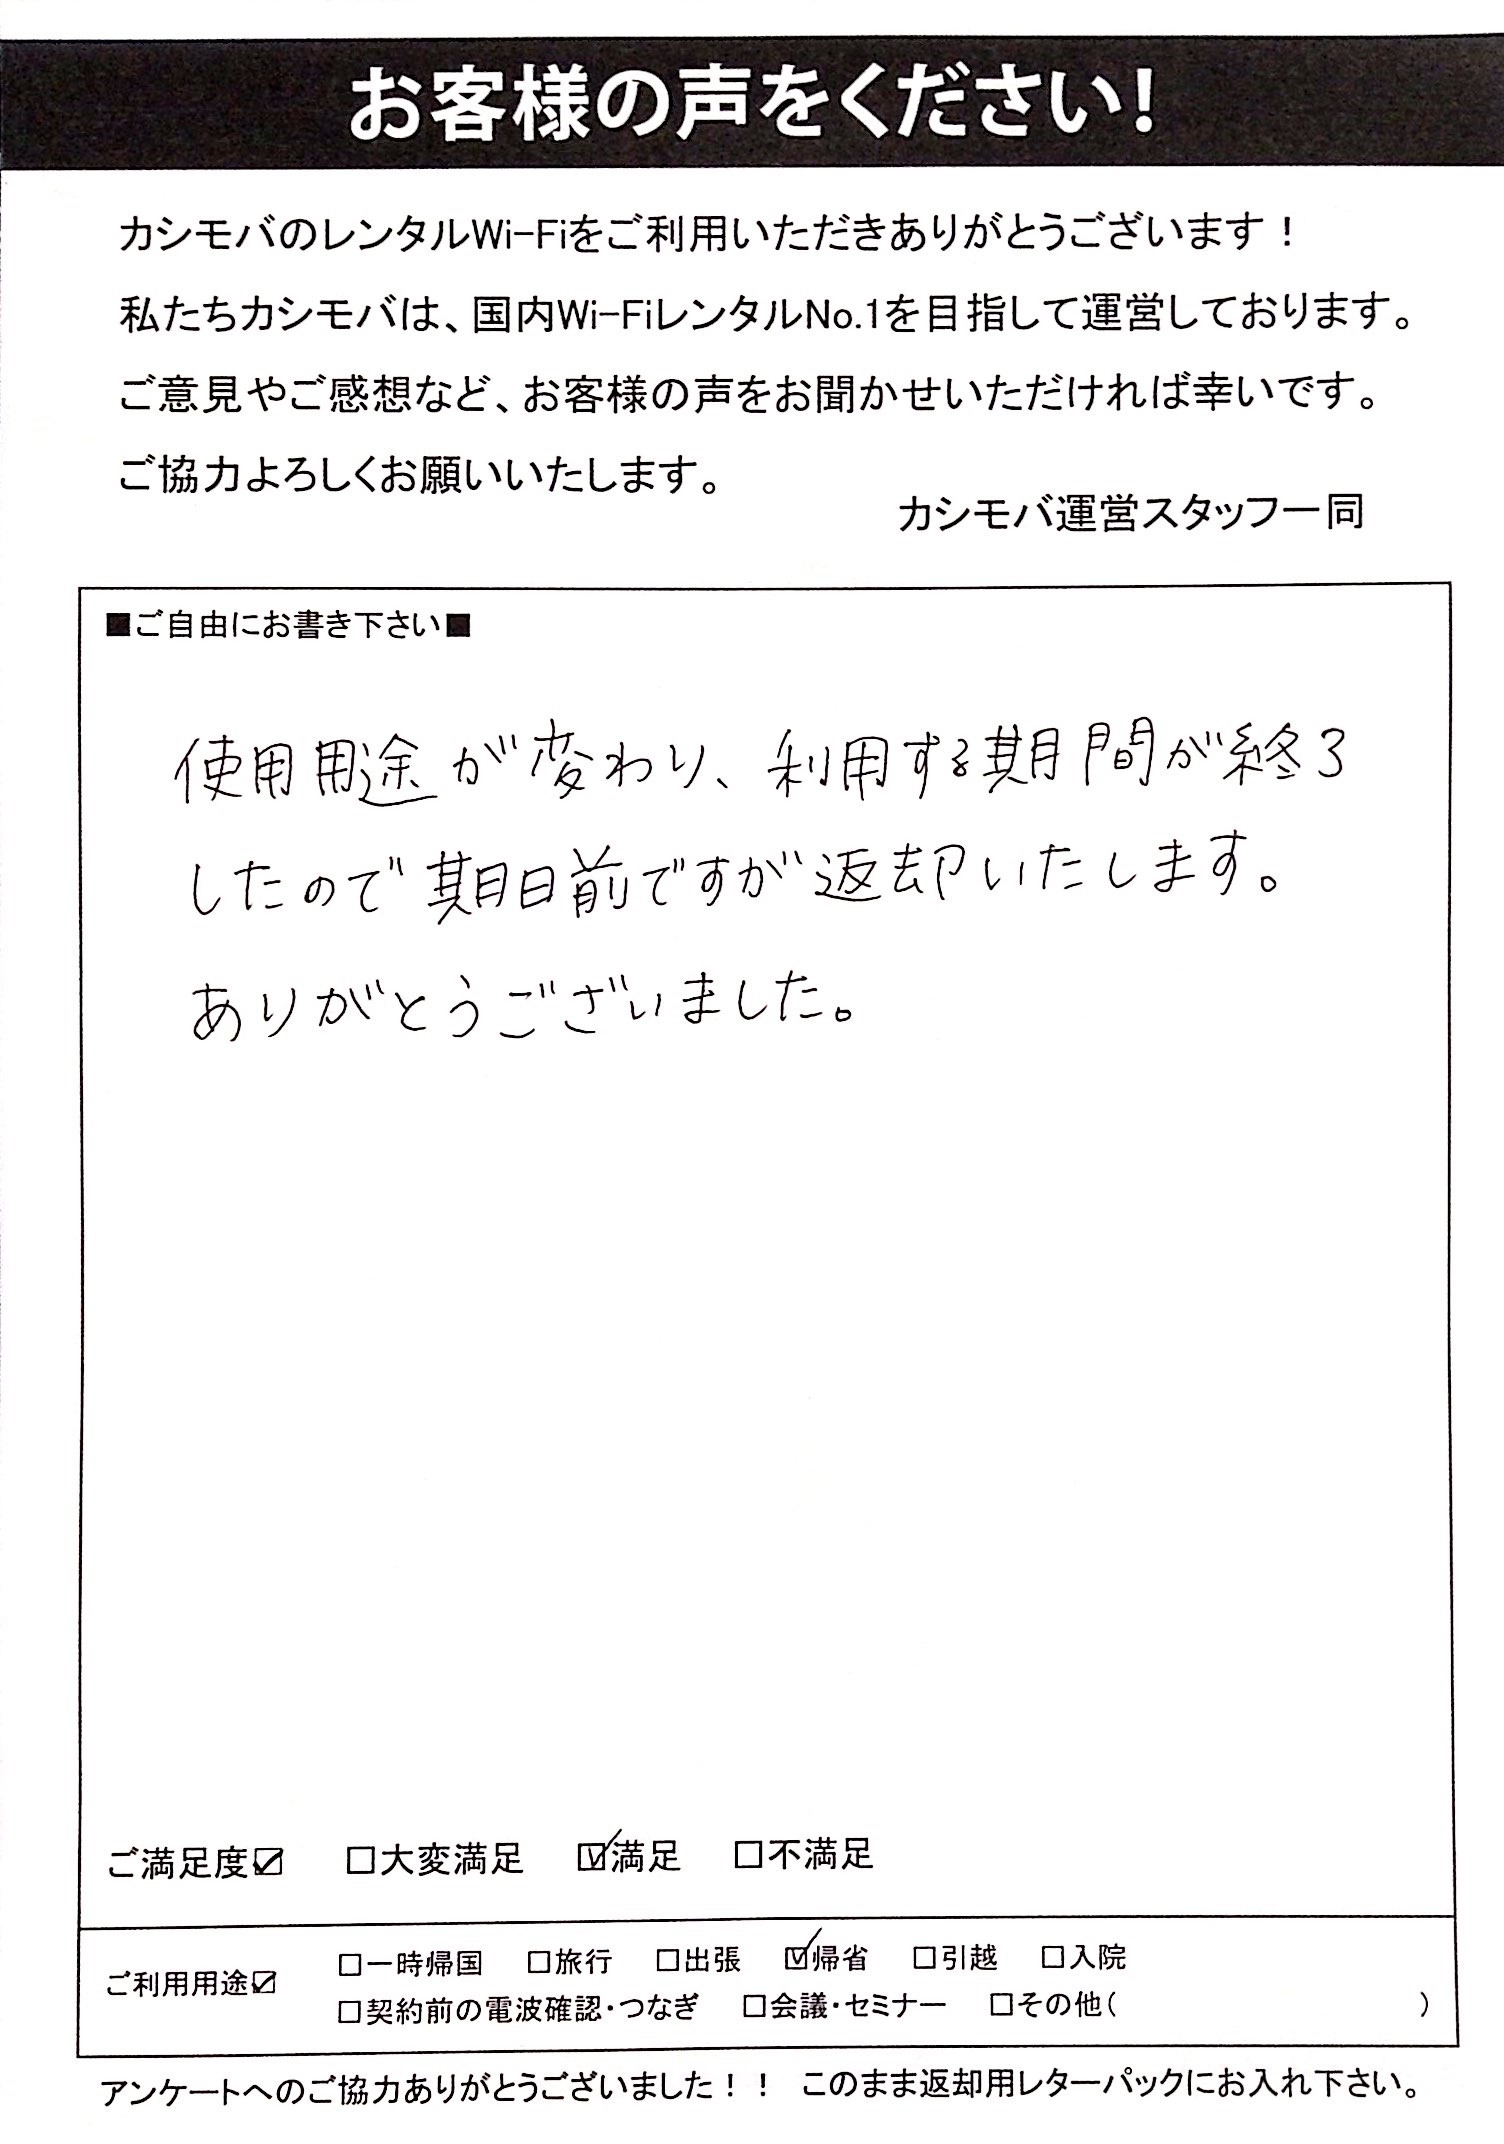 お客様の声をください!
カシモバのレンタルWi-Fiをご利用いただきありがとうございます！
私たちカシモバは、国内Wi-FiレンタルNo.1を目指して運営しております。
ご意見やご感想など、お客様の声をお聞かせいただければ幸いです。
ご協力よろしくお願いいたします。
カシモバ運営スタッフ一同
■ご自由にお書き下さい■
使用用途が変わり、利用する期間が終了
したので期日前ですが返却いたします。
ありがとうございました。
ご満足度☑ □大変満足 ☑満足 □不満足
ご利用用途☑ □一時帰国 □旅行 □出張 ☑帰省 □引越 □入院
□契約前の電波確認・つなぎ □会議・セミナー □その他( )
アンケートへのご協力ありがとうございました！！ このまま返却用レターパックにお入れ下さい。